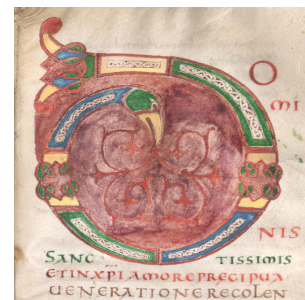 DO
MI
NIS
SANCTISSIMIS
ETINXPIAMOREPRECIPUA
UENERATIONERECOLEN